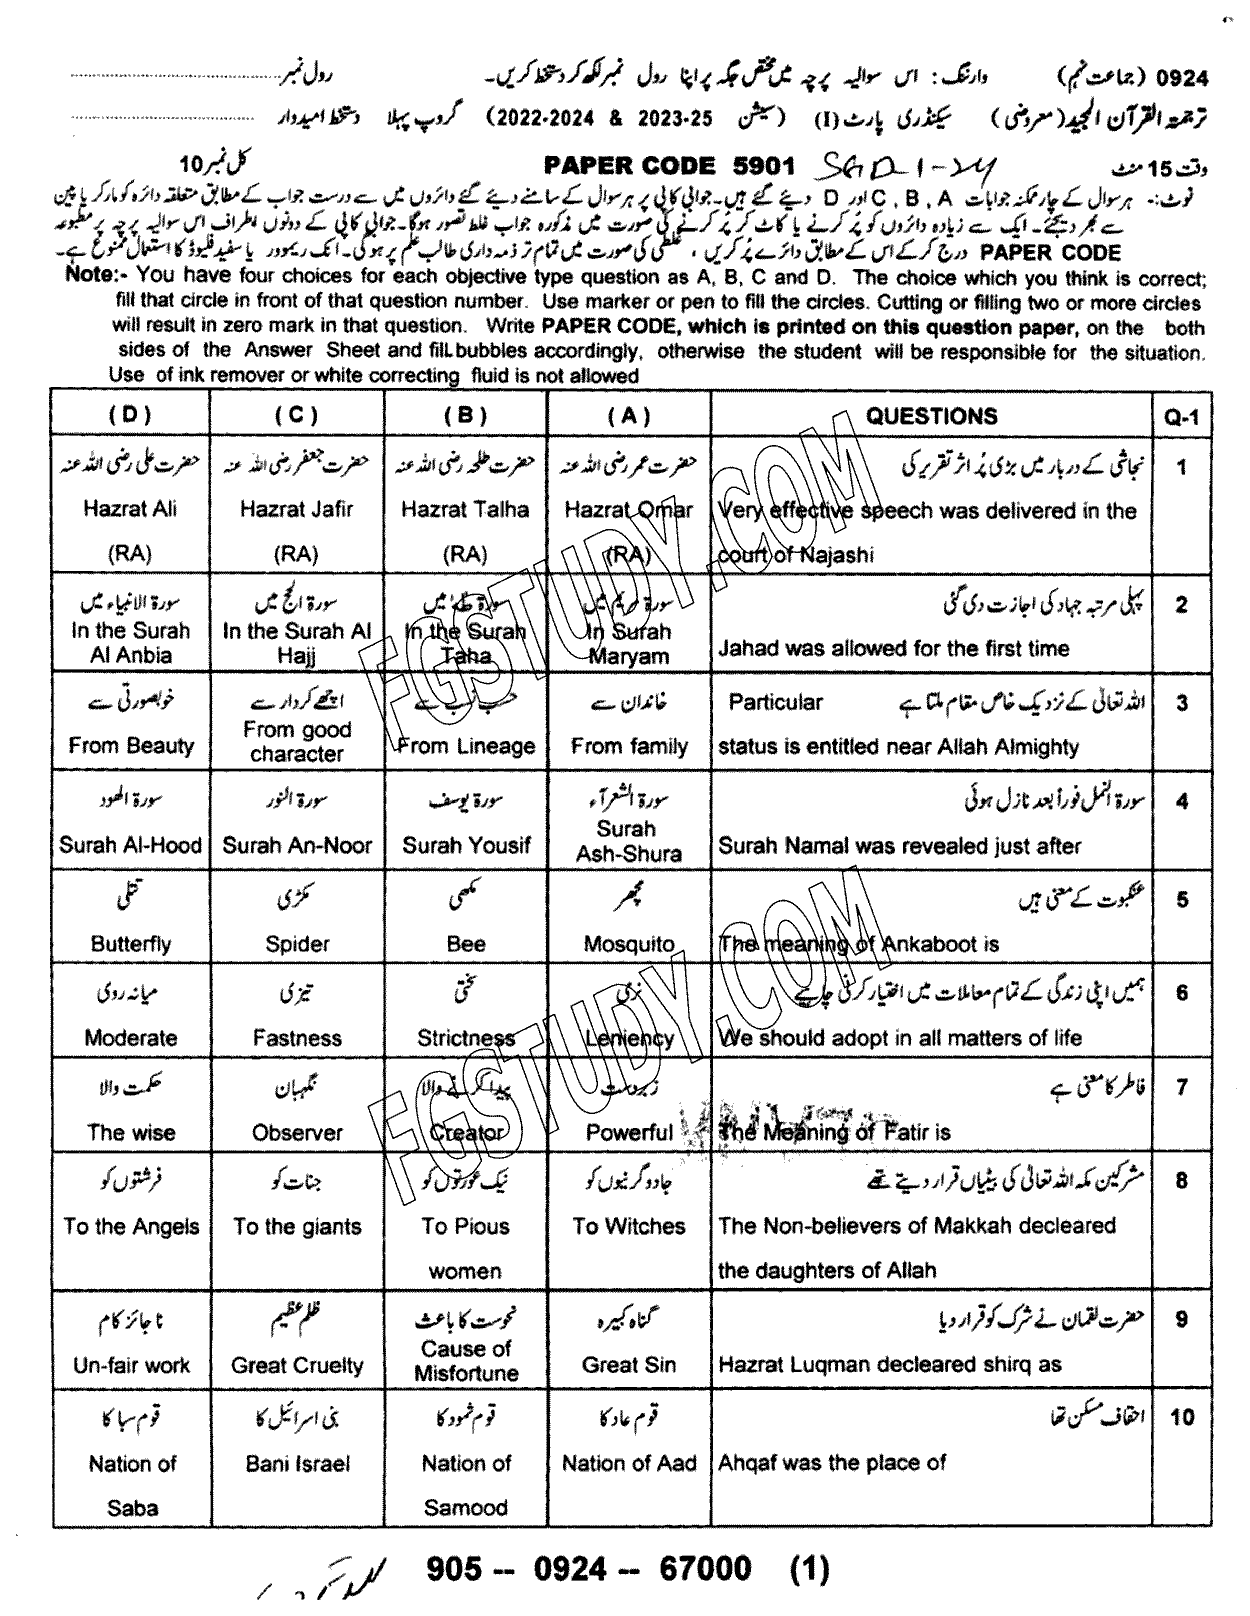 0924 (جماعت نہم) وارننگ: اس سوالیہ پرچہ میں مختص جگہ پر اپنا رول نمبر لکھ کر دستخط کریں۔ رول نمبر
ترجمۃ القرآن المجید (معروضی) سیکنڈری پارٹ (I) (سیشن 2023-25 & 2022-2024) گروپ پہلا دستخط امیدوار
وقت 15 منٹ SGD-1-24 PAPER CODE 5901 کل نمبر 10
نوٹ:- ہر سوال کے چار ممکنہ جوابات A , B , C اور D دیئے گئے ہیں۔ جوابی کاپی پر ہر سوال کے سامنے دیئے گئے دائروں میں سے درست جواب کے مطابق متعلقہ دائرہ کو مارکر یا پین
سے بھر دیجئے۔ ایک سے زیادہ دائروں کو پُر کرنے یا کاٹ کر پُر کرنے کی صورت میں مذکورہ جواب غلط تصور ہوگا۔ جوابی کاپی کے دونوں اطراف اس سوالیہ پرچہ پر مطبوعہ
PAPER CODE درج کرکے اس کے مطابق دائرے پُر کریں ، غلطی کی صورت میں تمام تر ذمہ داری طالب علم پر ہوگی۔ انک ریموور یا سفید فلیوڈ کا استعمال ممنوع ہے۔
Note:- You have four choices for each objective type question as A, B, C and D. The choice which you think is correct;
fill that circle in front of that question number. Use marker or pen to fill the circles. Cutting or filling two or more circles
will result in zero mark in that question. Write PAPER CODE, which is printed on this question paper, on the both
sides of the Answer Sheet and fill bubbles accordingly, otherwise the student will be responsible for the situation.
Use of ink remover or white correcting fluid is not allowed
( D ) ( C ) ( B ) ( A ) QUESTIONS Q-1
حضرت علی رضی اللہ عنہ حضرت جعفر رضی اللہ عنہ حضرت طلحہ رضی اللہ عنہ حضرت عمر رضی اللہ عنہ نجاشی کے دربار میں بڑی پُر اثر تقریر کی 1
Hazrat Ali Hazrat Jafir Hazrat Talha Hazrat Omar Very effective speech was delivered in the
(RA) (RA) (RA) (RA) court of Najashi
سورۃ الانبیاء میں سورۃ الحج میں سورۃ طٰہٰ میں سورۃ مریم میں پہلی مرتبہ جہاد کی اجازت دی گئی 2
In the Surah In the Surah Al In the Surah In Surah
Al Anbia Hajj Taha Maryam Jahad was allowed for the first time
خوبصورتی سے اچھے کردار سے حسب نسب سے خاندان سے Particular اللہ تعالیٰ کے نزدیک خاص مقام ملتا ہے 3
From Beauty From good character From Lineage From family status is entitled near Allah Almighty
سورۃ الھود سورۃ النور سورۃ یوسف سورۃ الشعرآء سورۃ النمل فوراً بعد نازل ہوئی 4
Surah Al-Hood Surah An-Noor Surah Yousif Surah Ash-Shura Surah Namal was revealed just after
تتلی مکڑی مکھی مچھر عنکبوت کے معنی ہیں 5
Butterfly Spider Bee Mosquito The meaning of Ankaboot is
میانہ روی تیزی سختی نرمی ہمیں اپنی زندگی کے تمام معاملات میں اختیار کرنی چاہیے 6
Moderate Fastness Strictness Leniency We should adopt in all matters of life
حکمت والا نگہبان پیدا کرنے والا زبردست فاطر کا معنی ہے 7
The wise Observer Creator Powerful The Meaning of Fatir is
فرشتوں کو جنات کو نیک عورتوں کو جادوگرنیوں کو مشرکین مکہ اللہ تعالیٰ کی بیٹیاں قرار دیتے تھے 8
To the Angels To the giants To Pious To Witches The Non-believers of Makkah decleared
women the daughters of Allah
ناجائز کام ظلم عظیم نحوست کا باعث گناہ کبیرہ حضرت لقمان نے شرک کو قرار دیا 9
Un-fair work Great Cruelty Cause of Misfortune Great Sin Hazrat Luqman decleared shirq as
قوم سبا کا بنی اسرائیل کا قوم ثمود کا قوم عاد کا احقاف مسکن تھا 10
Nation of Bani Israel Nation of Nation of Aad Ahqaf was the place of
Saba Samood
905 -- 0924 -- 67000 (1)
FGSTUDY.COM
FGSTUDY.COM